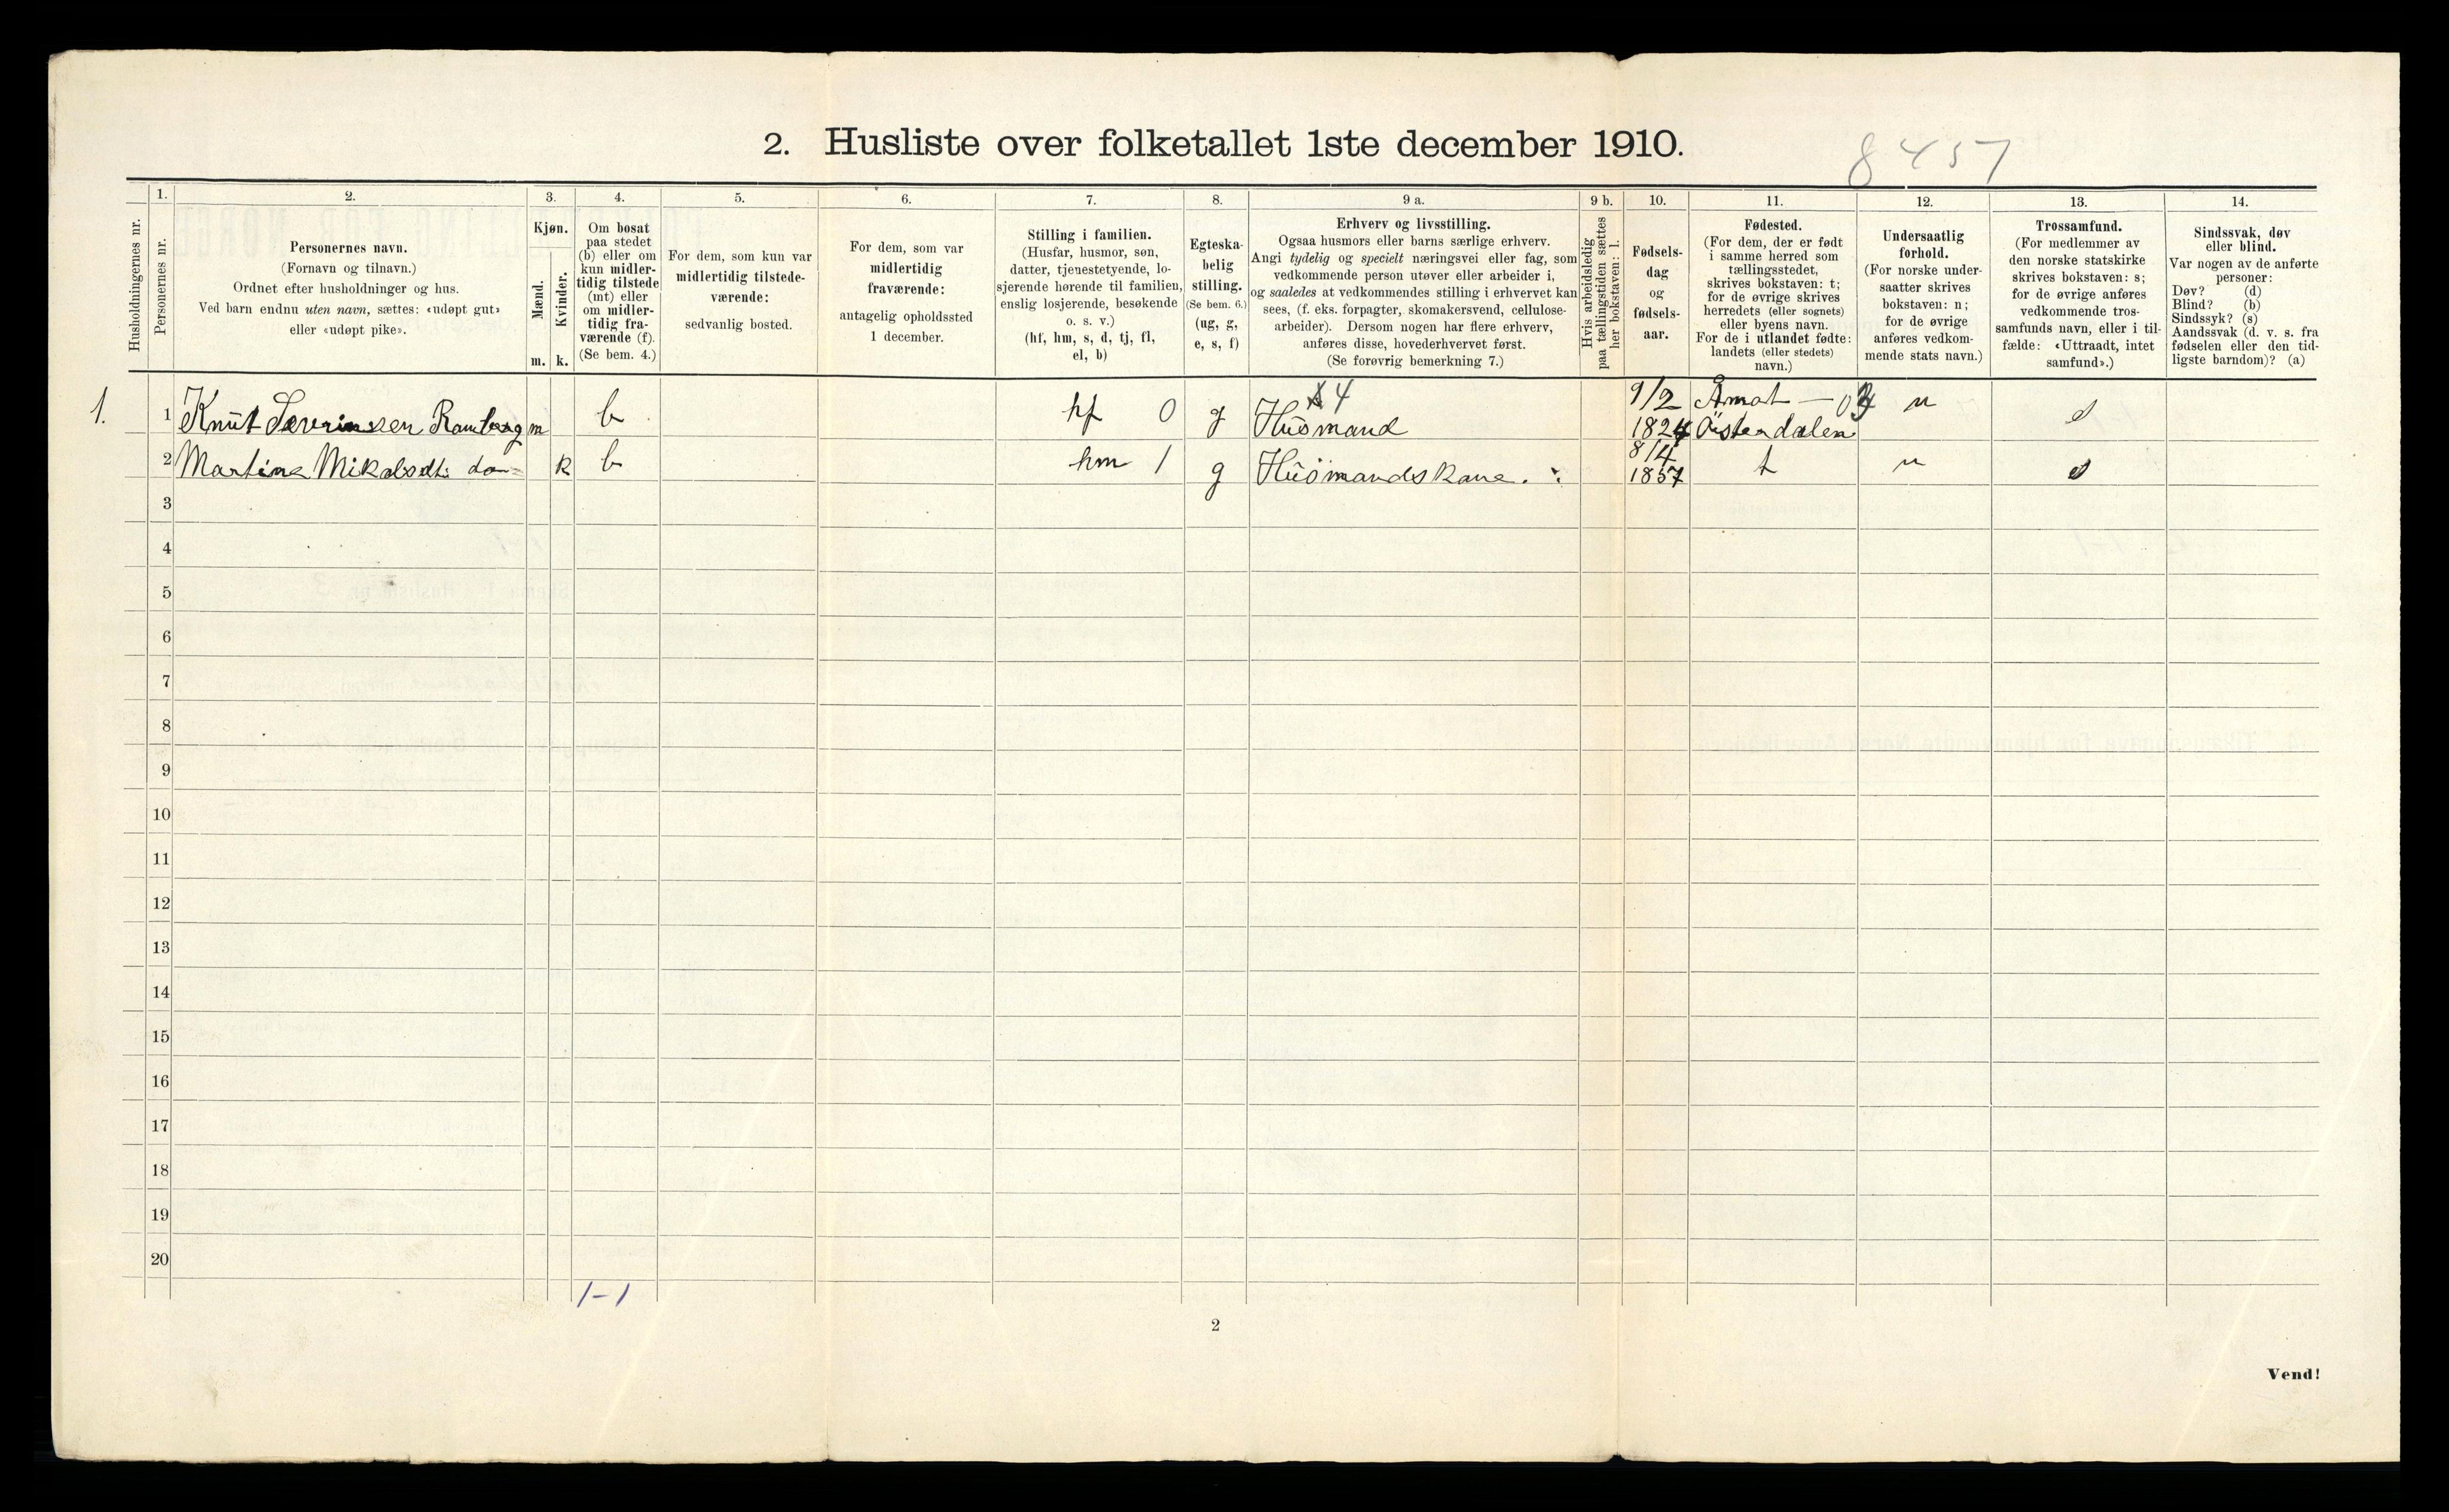 2. Husliste over folketallet 1ste december 1910.
8457
Husholdningernes nr.
1.
Personernes nr.
2.
Personernes navn.
(Fornavn og tilnavn.)
Ordnet efter husholdninger og hus.
Ved barn endnu uten navn, sættes: «udøpt gut»
eller «udøpt pike».
3.
Kjøn.
Mænd.
Kvinder.
m. k.
4.
Om bosat
paa stedet
(b) eller om
kun midler-
tidig tilstede
(mt) eller
om midler-
tidig fra-
værende (f).
(Se bem. 4.)
5.
For dem, som kun var
midlertidig tilstede-
værende:
sedvanlig bosted.
6.
For dem, som var
midlertidig
fraværende:
antagelig opholdssted
1 december.
7.
Stilling i familien.
(Husfar, husmor, søn,
datter, tjenestetyende, lo-
sjerende hørende til familien,
enslig losjerende, besøkende
o. s. v.)
(hf, hm, s, d, tj, fl,
el, b)
8.
Egteska-
belig
stilling.
(Se bem. 6.)
(ug, g,
e, s, f)
9 a.
Erhverv og livsstilling.
Ogsaa husmors eller barns særlige erhverv.
Angi tydelig og specielt næringsvei eller fag, som
vedkommende person utøver eller arbeider i,
og saaledes at vedkommendes stilling i erhvervet kan
sees, (f. eks. forpagter, skomakersvend, cellulose-
arbeider). Dersom nogen har flere erhverv,
anføres disse, hovederhvervet først.
(Se forøvrig bemerkning 7.)
9 b.
Hvis arbeidsledig
paa tællingstiden sættes
her bokstaven: l.
10.
Fødsels-
dag
og
fødsels-
aar.
11.
Fødested.
(For dem, der er født
i samme herred som
tællingsstedet,
skrives bokstaven: t;
for de øvrige skrives
herredets (eller sognets)
eller byens navn.
For de i utlandet fødte:
landets (eller stedets)
navn.)
12.
Undersaatlig
forhold.
(For norske under-
saatter skrives
bokstaven: n;
for de øvrige
anføres vedkom-
mende stats navn.)
13.
Trossamfund.
(For medlemmer av
den norske statskirke
skrives bokstaven: s;
for de øvrige anføres
vedkommende tros-
samfunds navn, eller i til-
fælde: «Uttraadt, intet
samfund».)
14.
Sindssvak, døv
eller blind.
Var nogen av de anførte
personer:
Døv? (d)
Blind? (b)
Sindssyk? (s)
Aandssvak (d. v. s. fra
fødselen eller den tid-
ligste barndom)? (a)
1. 1 Knut Severinsen Ramberg m b hf 0 g Husmand 9/2 1824 Åmot — Österdalen n s
2 Martine Mikalsdt. do k b hm 1 g Husmandskone. 8/4 1857 t n s
3
4
5
6
7
8
9
10
11
12
13
14
15
16
17
18
19
20
1-1
2
Vend!